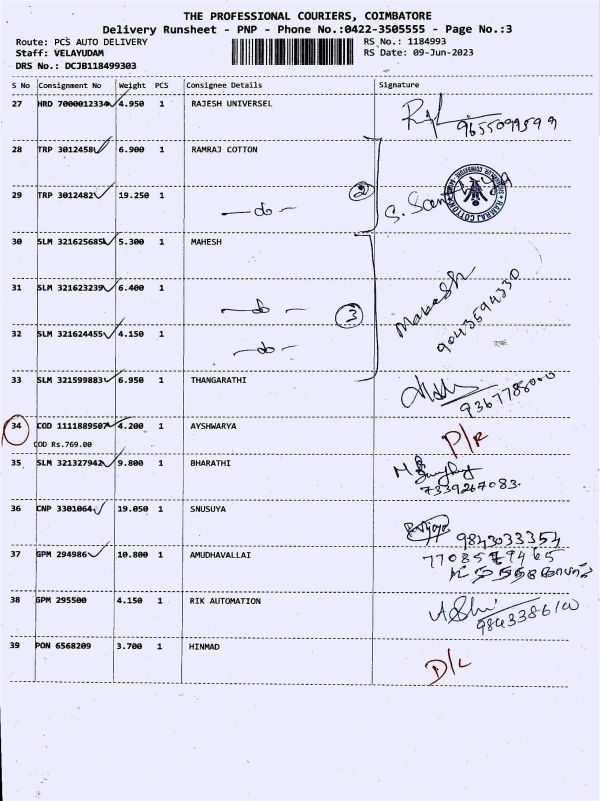 THE PROFESSIONAL COURIERS, COIMBATORE
Delivery Runsheet - PNP - Phone No.:0422-3505555 - Page No.:3
Route: PCS AUTO DELIVERY RS No.: 1184993
Staff: VELAYUDAM RS Date: 09-Jun-2023
DRS No.: DCJB118499303
S No Consignment No Weight PCS Consignee Details Signature
27 HRD 7000012334 4.950 1 RAJESH UNIVERSEL
9655099599
28 TRP 3012458 6.900 1 RAMRAJ COTTON
29 TRP 3012482 19.250 1 —do— 2
RAMRAJ COTTON
30 SLM 321625685 5.300 1 MAHESH
31 SLM 321623239 6.400 1 —do— 3 Mahesh
32 SLM 321624455 4.150 1 —do— 9043594330
33 SLM 321599883 6.950 1 THANGARATHI
9367788000
34 COD 1111889507 4.200 1 AYSHWARYA P/R
COD Rs.769.00
35 SLM 321327942 9.800 1 BHARATHI
7339267083.
36 CNP 3301064 19.050 1 SNUSUYA
9843033354
37 GPM 294986 10.800 1 AMUDHAVALLAI 7708579465
38 GPM 295500 4.150 1 RIK AUTOMATION
39 PON 6568209 3.700 1 HINMAD D/L